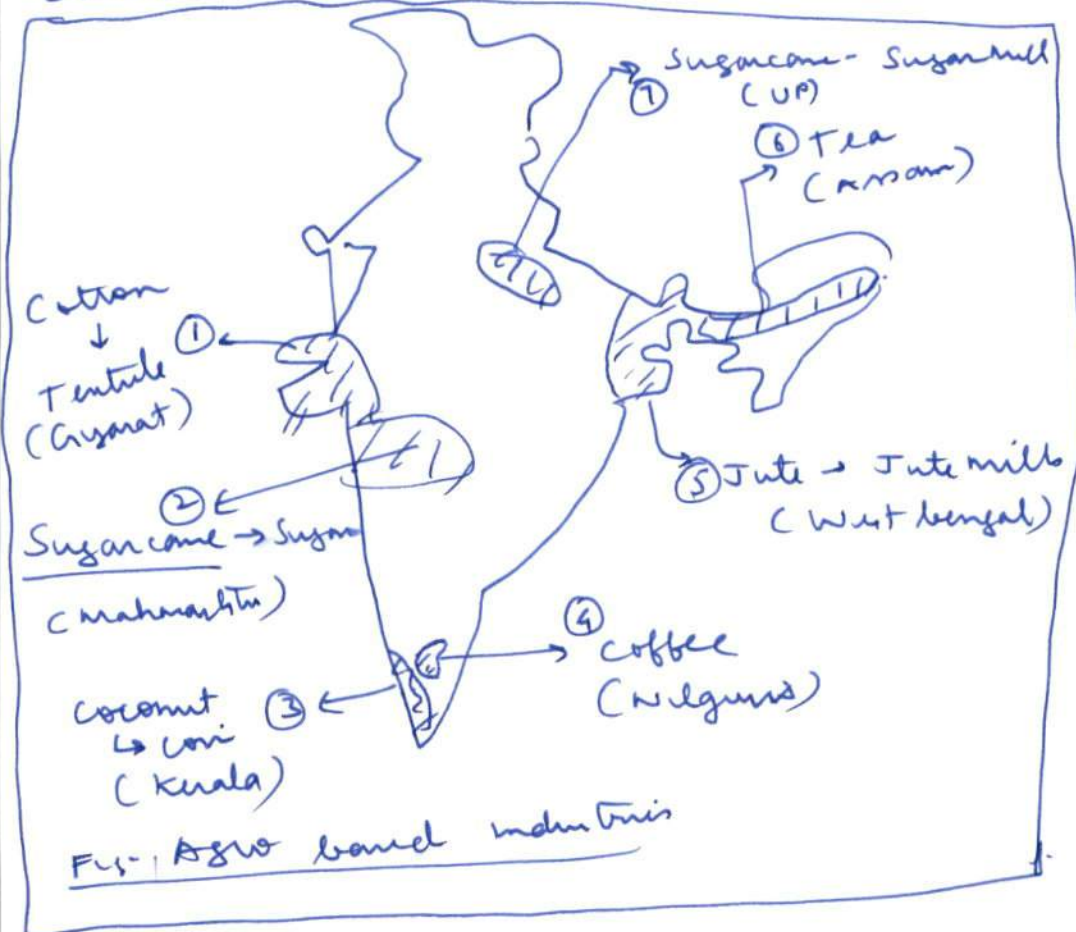 ⑦ Sugarcane - Sugar mill
(UP)
⑥ Tea
(Assam)
Cotton ①
↓
Textile
(Gujarat)
②
Sugarcane → Sugar
(Maharashtra)
⑤ Jute → Jute mills
(West bengal)
④
Coffee
(Nilgiris)
Coconut ③
↳ coir
(Kerala)
Fig-, Agro based industries